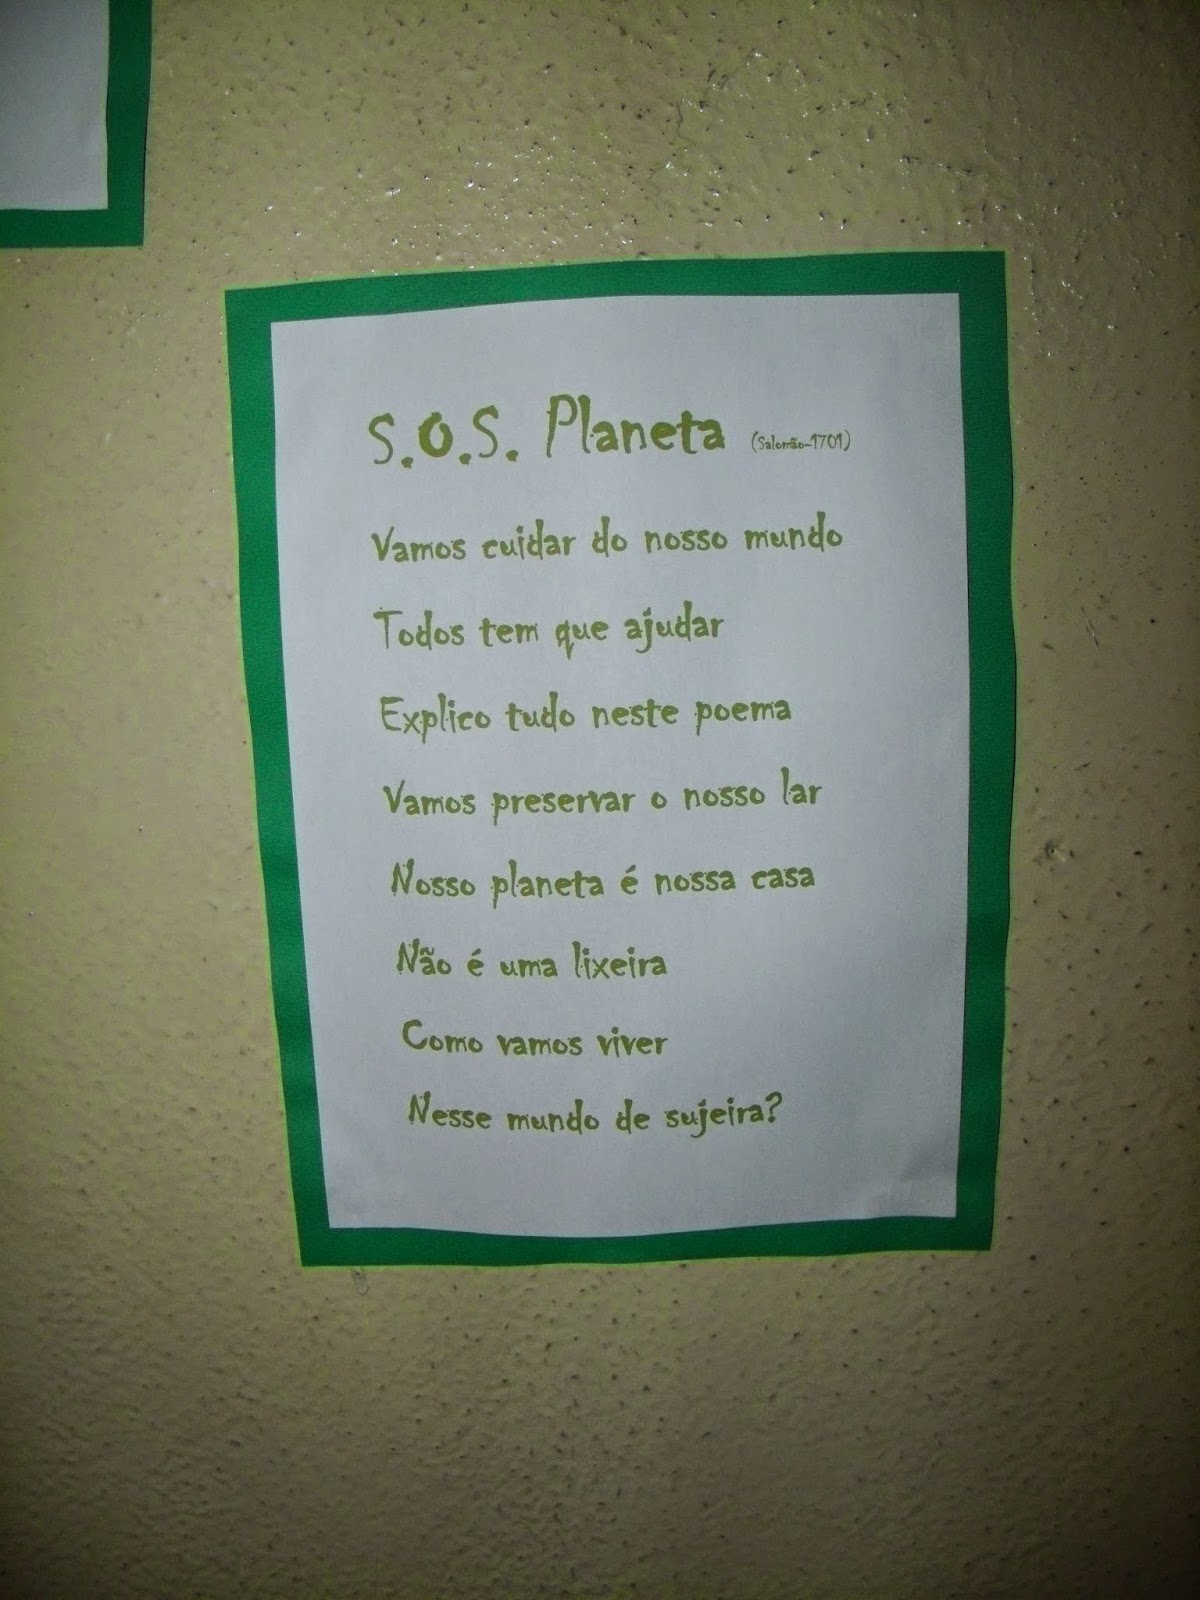 S.O.S. Planeta (Salomão-1701)
Vamos cuidar do nosso mundo
Todos tem que ajudar
Explico tudo neste poema
Vamos preservar o nosso lar
Nosso planeta é nossa casa
Não é uma lixeira
Como vamos viver
Nesse mundo de sujeira?